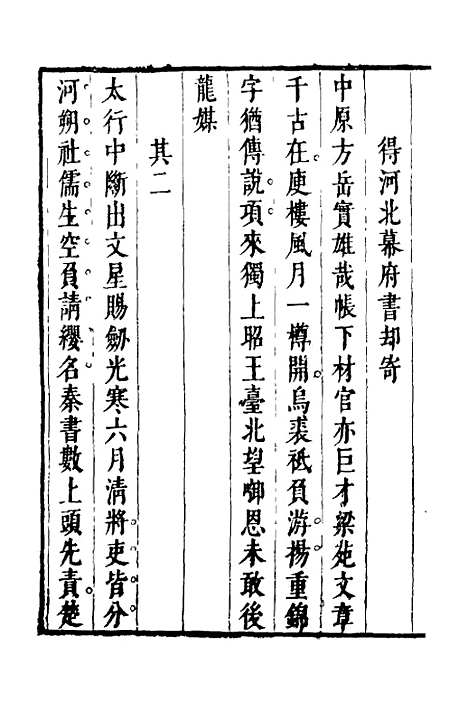 得河北幕府書却寄
中原方岳實雄哉帳下材官亦巨才梁苑文章
千古在。庾樓風月一樽開。烏裘祗負游。揚重錦
字猶傳說。項來獨上昭王臺北望啣恩未敢後
龍媒
其二
太行中斷出文星賜劒光寒六月清將。吏皆分。
河朔社儒生空負請纓名。秦書數上頭先責。楚